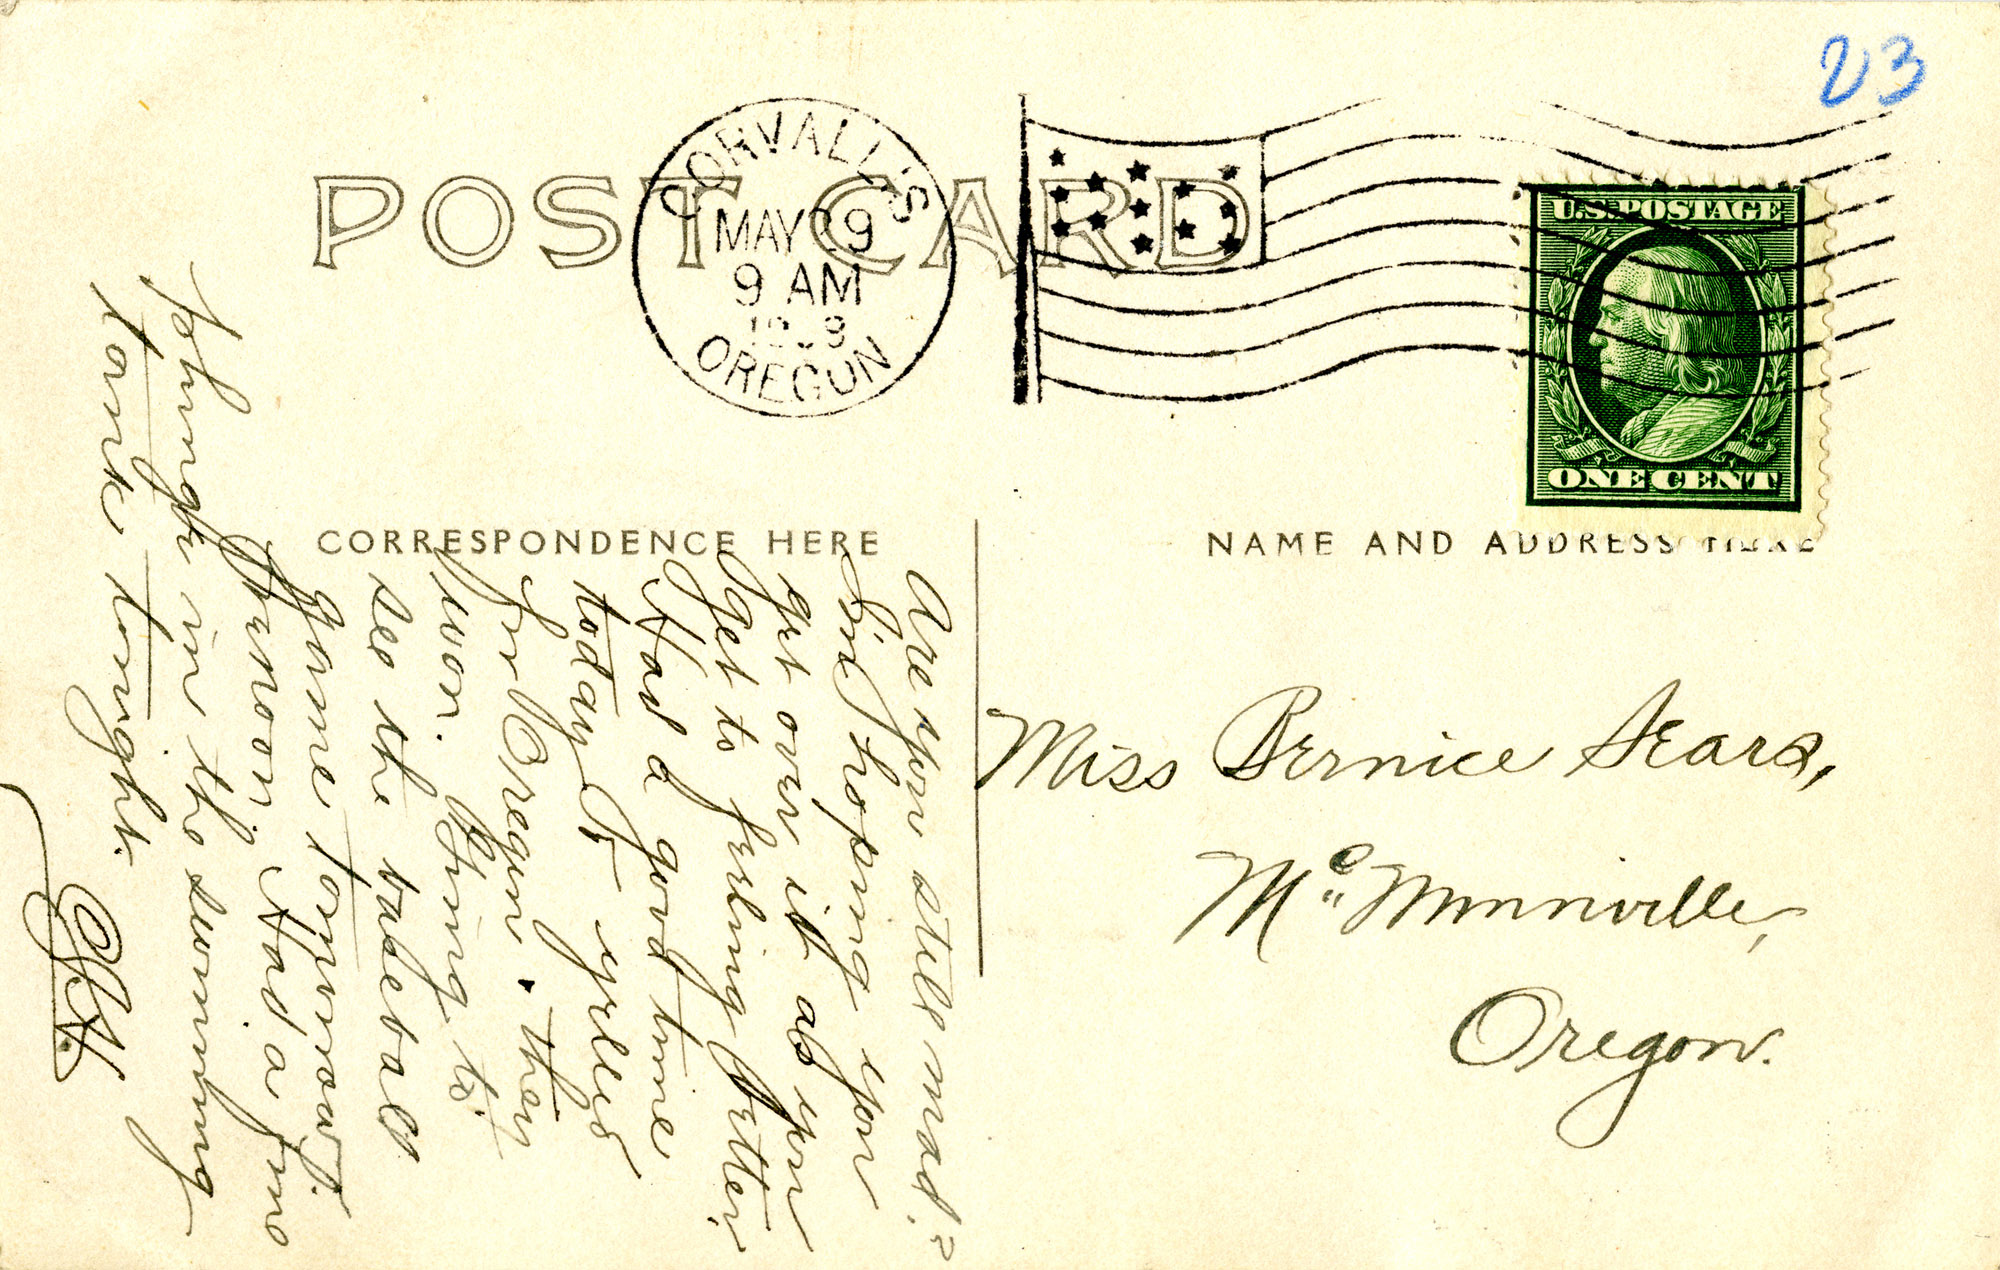 23
POST CARD
CORVALLIS
MAY 29
9 AM
OREGON
U.S. POSTAGE
ONE CENT
CORRESPONDENCE HERE
NAME AND ADDRESS HERE
Are you still mad?
Im hoping you
get over it as you
get to feeling better.
Had a good time
today & yelled
for Oregon. they
won. Going to
see the baseball
game tomorrow.
Had a fine
plunge in the swimming
tank tonight.
Miss Bernice Sears,
Mc Minnville,
Oregon.